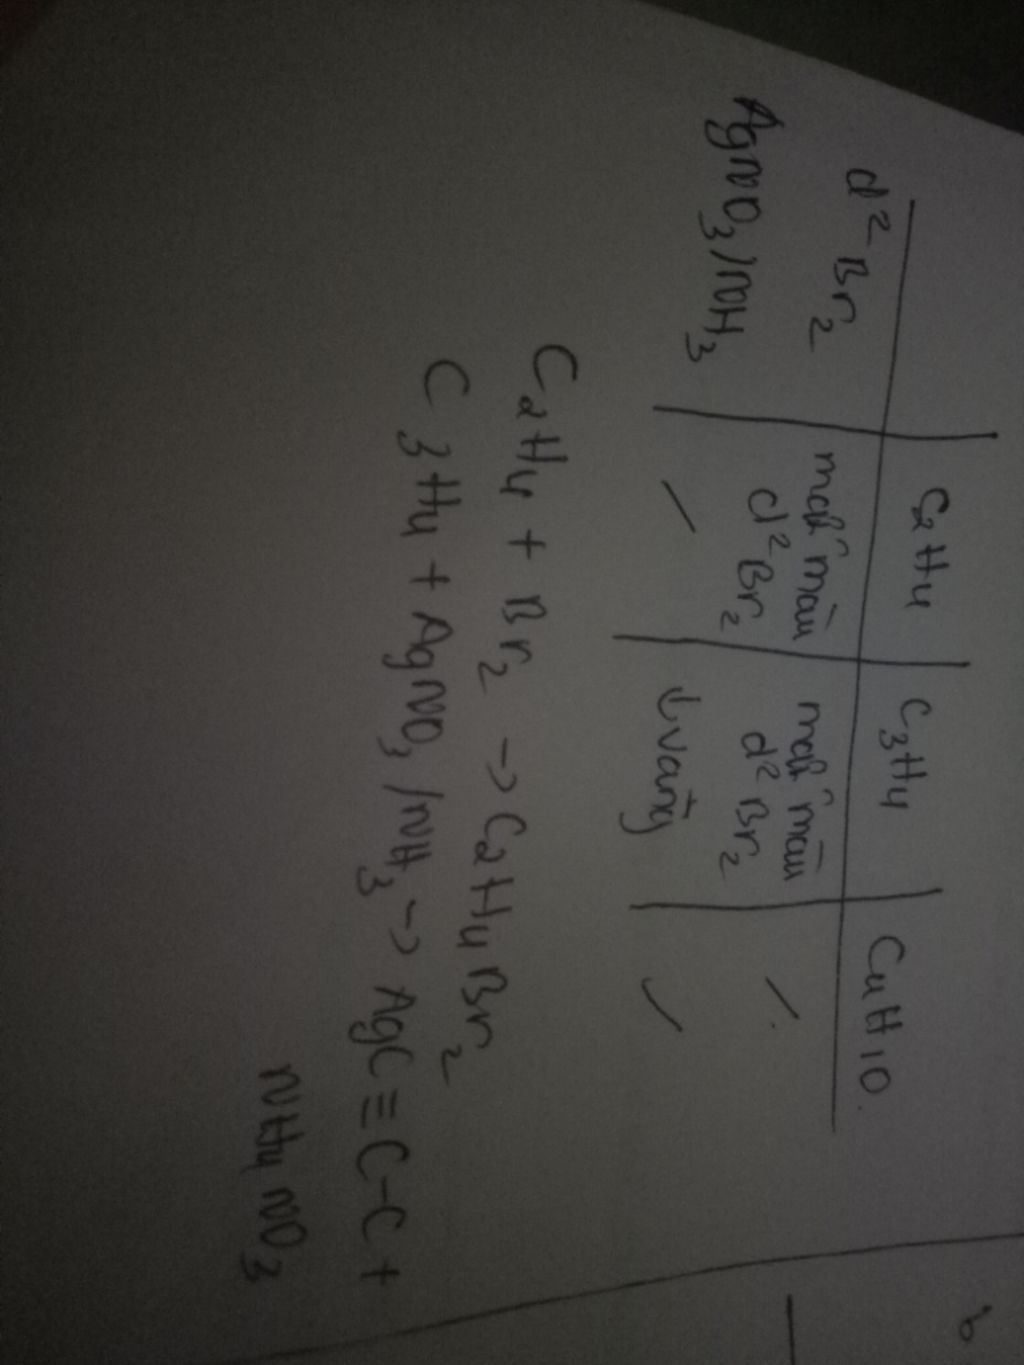 C2H4 C3H4 C4H10
d² Br2 mất màu mất màu /
d² Br2 d² Br2
AgNO3/NH3 / ↓ vàng /
C2H4 + Br2 → C2H4Br2
C3H4 + AgNO3/NH3 → AgC≡C-C +
NH4NO3
b